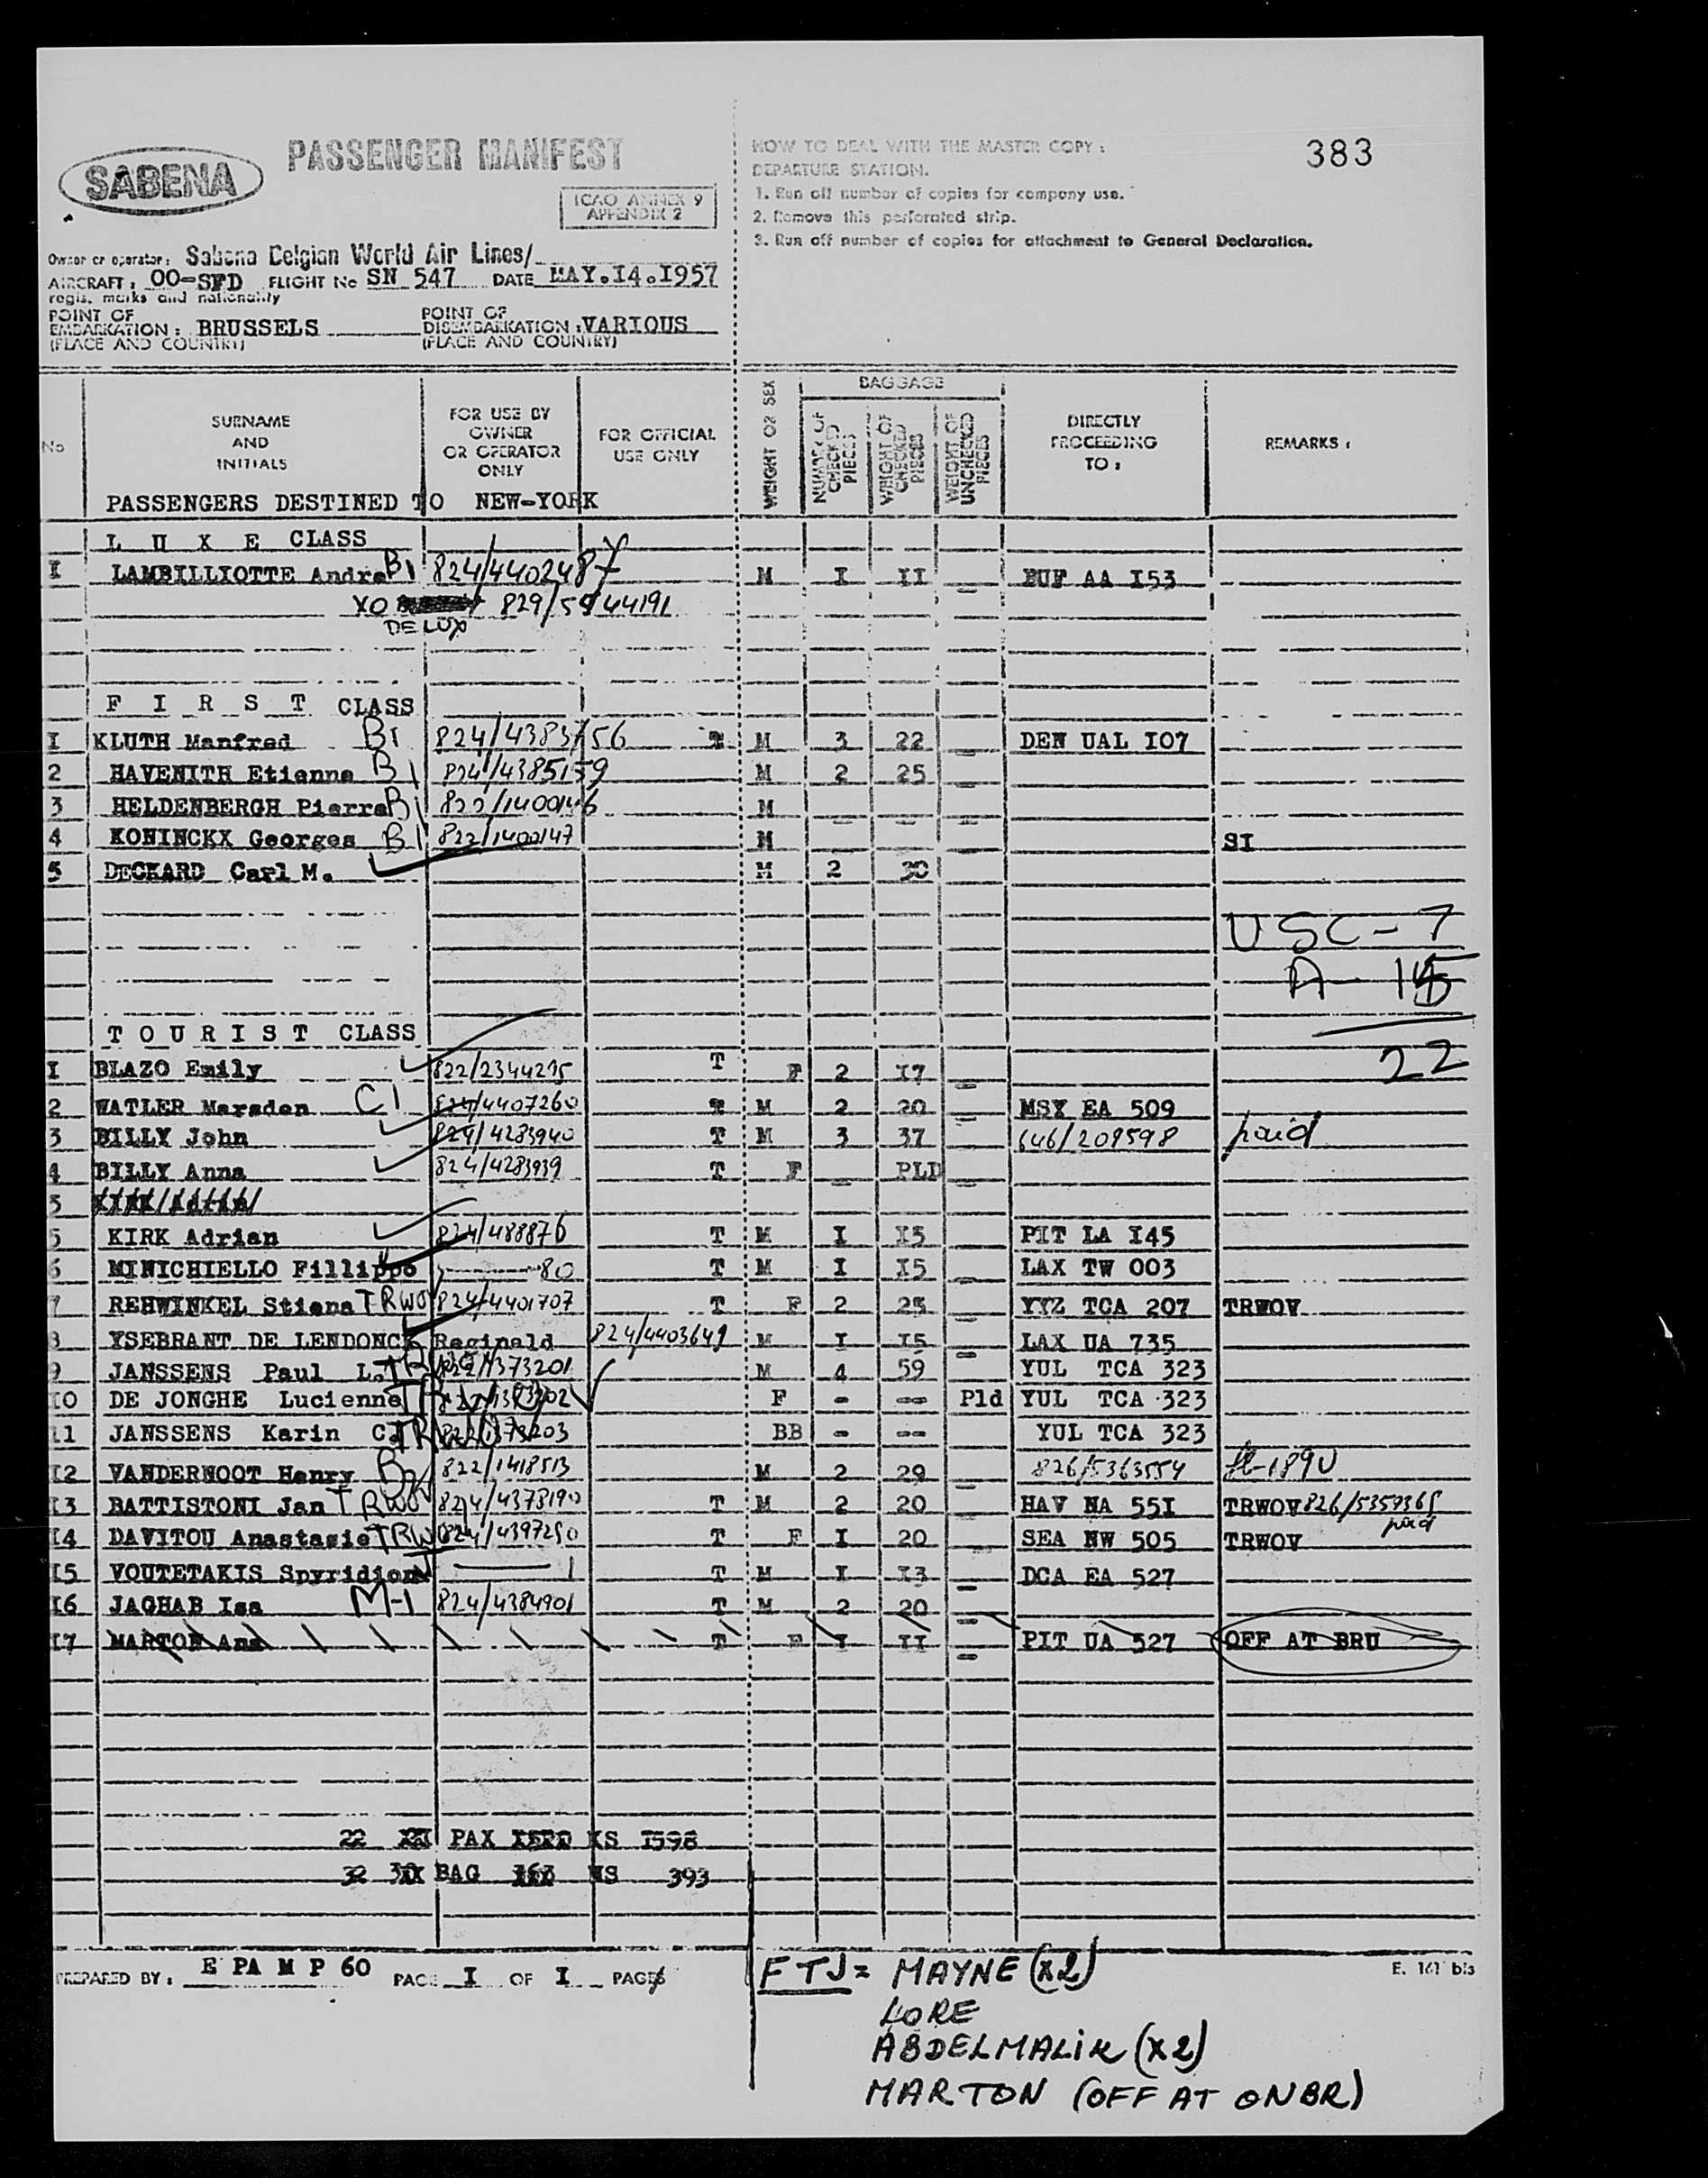 383
SABENA
PASSENGER MANIFEST
ICAO ANNEX 9
APPENDIX 2
HOW TO DEAL WITH THE MASTER COPY :
DEPARTURE STATION.
1. Run off number of copies for company use.
2. Remove this perforated strip.
3. Run off number of copies for attachment to General Declaration.
Owner or operator: Sabena Belgian World Air Lines/
AIRCRAFT : OO-SFD FLIGHT No SN 547 DATE MAY.I4.I957
regis. marks and nationality
POINT OF EMBARKATION : BRUSSELS POINT OF DISEMBARKATION : VARIOUS
(PLACE AND COUNTRY) (PLACE AND COUNTRY)
No SURNAME AND INITIALS FOR USE BY OWNER OR OPERATOR ONLY FOR OFFICIAL USE ONLY WEIGHT OR SEX BAGGAGE NUMBER OF CHECKED PIECES WEIGHT OF CHECKED PIECES WEIGHT OF UNCHECKED PIECES DIRECTLY PROCEEDING TO : REMARKS :
PASSENGERS DESTINED TO NEW-YORK
L U X E CLASS
I LAMBILLIOTTE Andre B1 824/4402487 M I II - BUF AA I53
XO 829/5944191
DE LUX
F I R S T CLASS
I KLUTH Manfred B1 824/4383756 T M 3 22 - DEN UAL I07
2 HAVENITH Etienne B1 824/4385159 M 2 25 -
3 HELDENBERGH Pierre B1 822/1400146 M - - -
4 KONINCKX Georges B1 822/1400147 M SI
5 DECKARD Carl M. M 2 30
USC - 7
A - 15
22
T O U R I S T CLASS
I BLAZO Emily 822/2344215 T F 2 I7 -
2 WATLER Marsden C1 824/4407260 T M 2 20 - MSY EA 509
3 BILLY John 824/4283940 T M 3 37 - 646/209598 paid
4 BILLY Anna 824/4283939 T F - PLD -
5 KIRK Adrian
5 KIRK Adrian 824/488876 T M I I5 PIT LA I45
6 MINICHIELLO Fillippo 80 T M I I5 - LAX TW 003
7 REHWINKEL Stiena TRWOV 824/4401707 T F 2 25 - YYZ TCA 207 TRWOV
8 YSEBRANT DE LENDONCK Reginald 824/4403649 M I I5 - LAX UA 735
9 JANSSENS Paul L. M 4 59 YUL TCA 323
I0 DE JONGHE Lucienne F - -- Pld YUL TCA 323
11 JANSSENS Karin C. BB - -- YUL TCA 323
I2 VANDERNOOT Henry B2 822/1418513 M 2 29 - 826/5363554
I3 BATTISTONI Jan TRWOV 824/4378190 T M 2 20 - HAV NA 55I TRWOV 826/5359365
paid
I4 DAVITOU Anastasie TRWOV 824/4397250 T F I 20 - SEA NW 505 TRWOV
I5 VOUTETAKIS Spyridion 1 T M I I3 - DCA EA 527
I6 JAGHAB Isa M-1 824/4384901 T M 2 20 -
I7 MARTON Ana T F I II - PIT UA 527 OFF AT BRU
22 PAX KS I598
32 BAG WS 393
PREPARED BY : E PA M P 60 PAGE I OF I PAGES
E. 161 bis
FTJ = MAYNE (x2)
LORE
ABDELMALIK (x2)
MARTON (OFF AT ONBR)